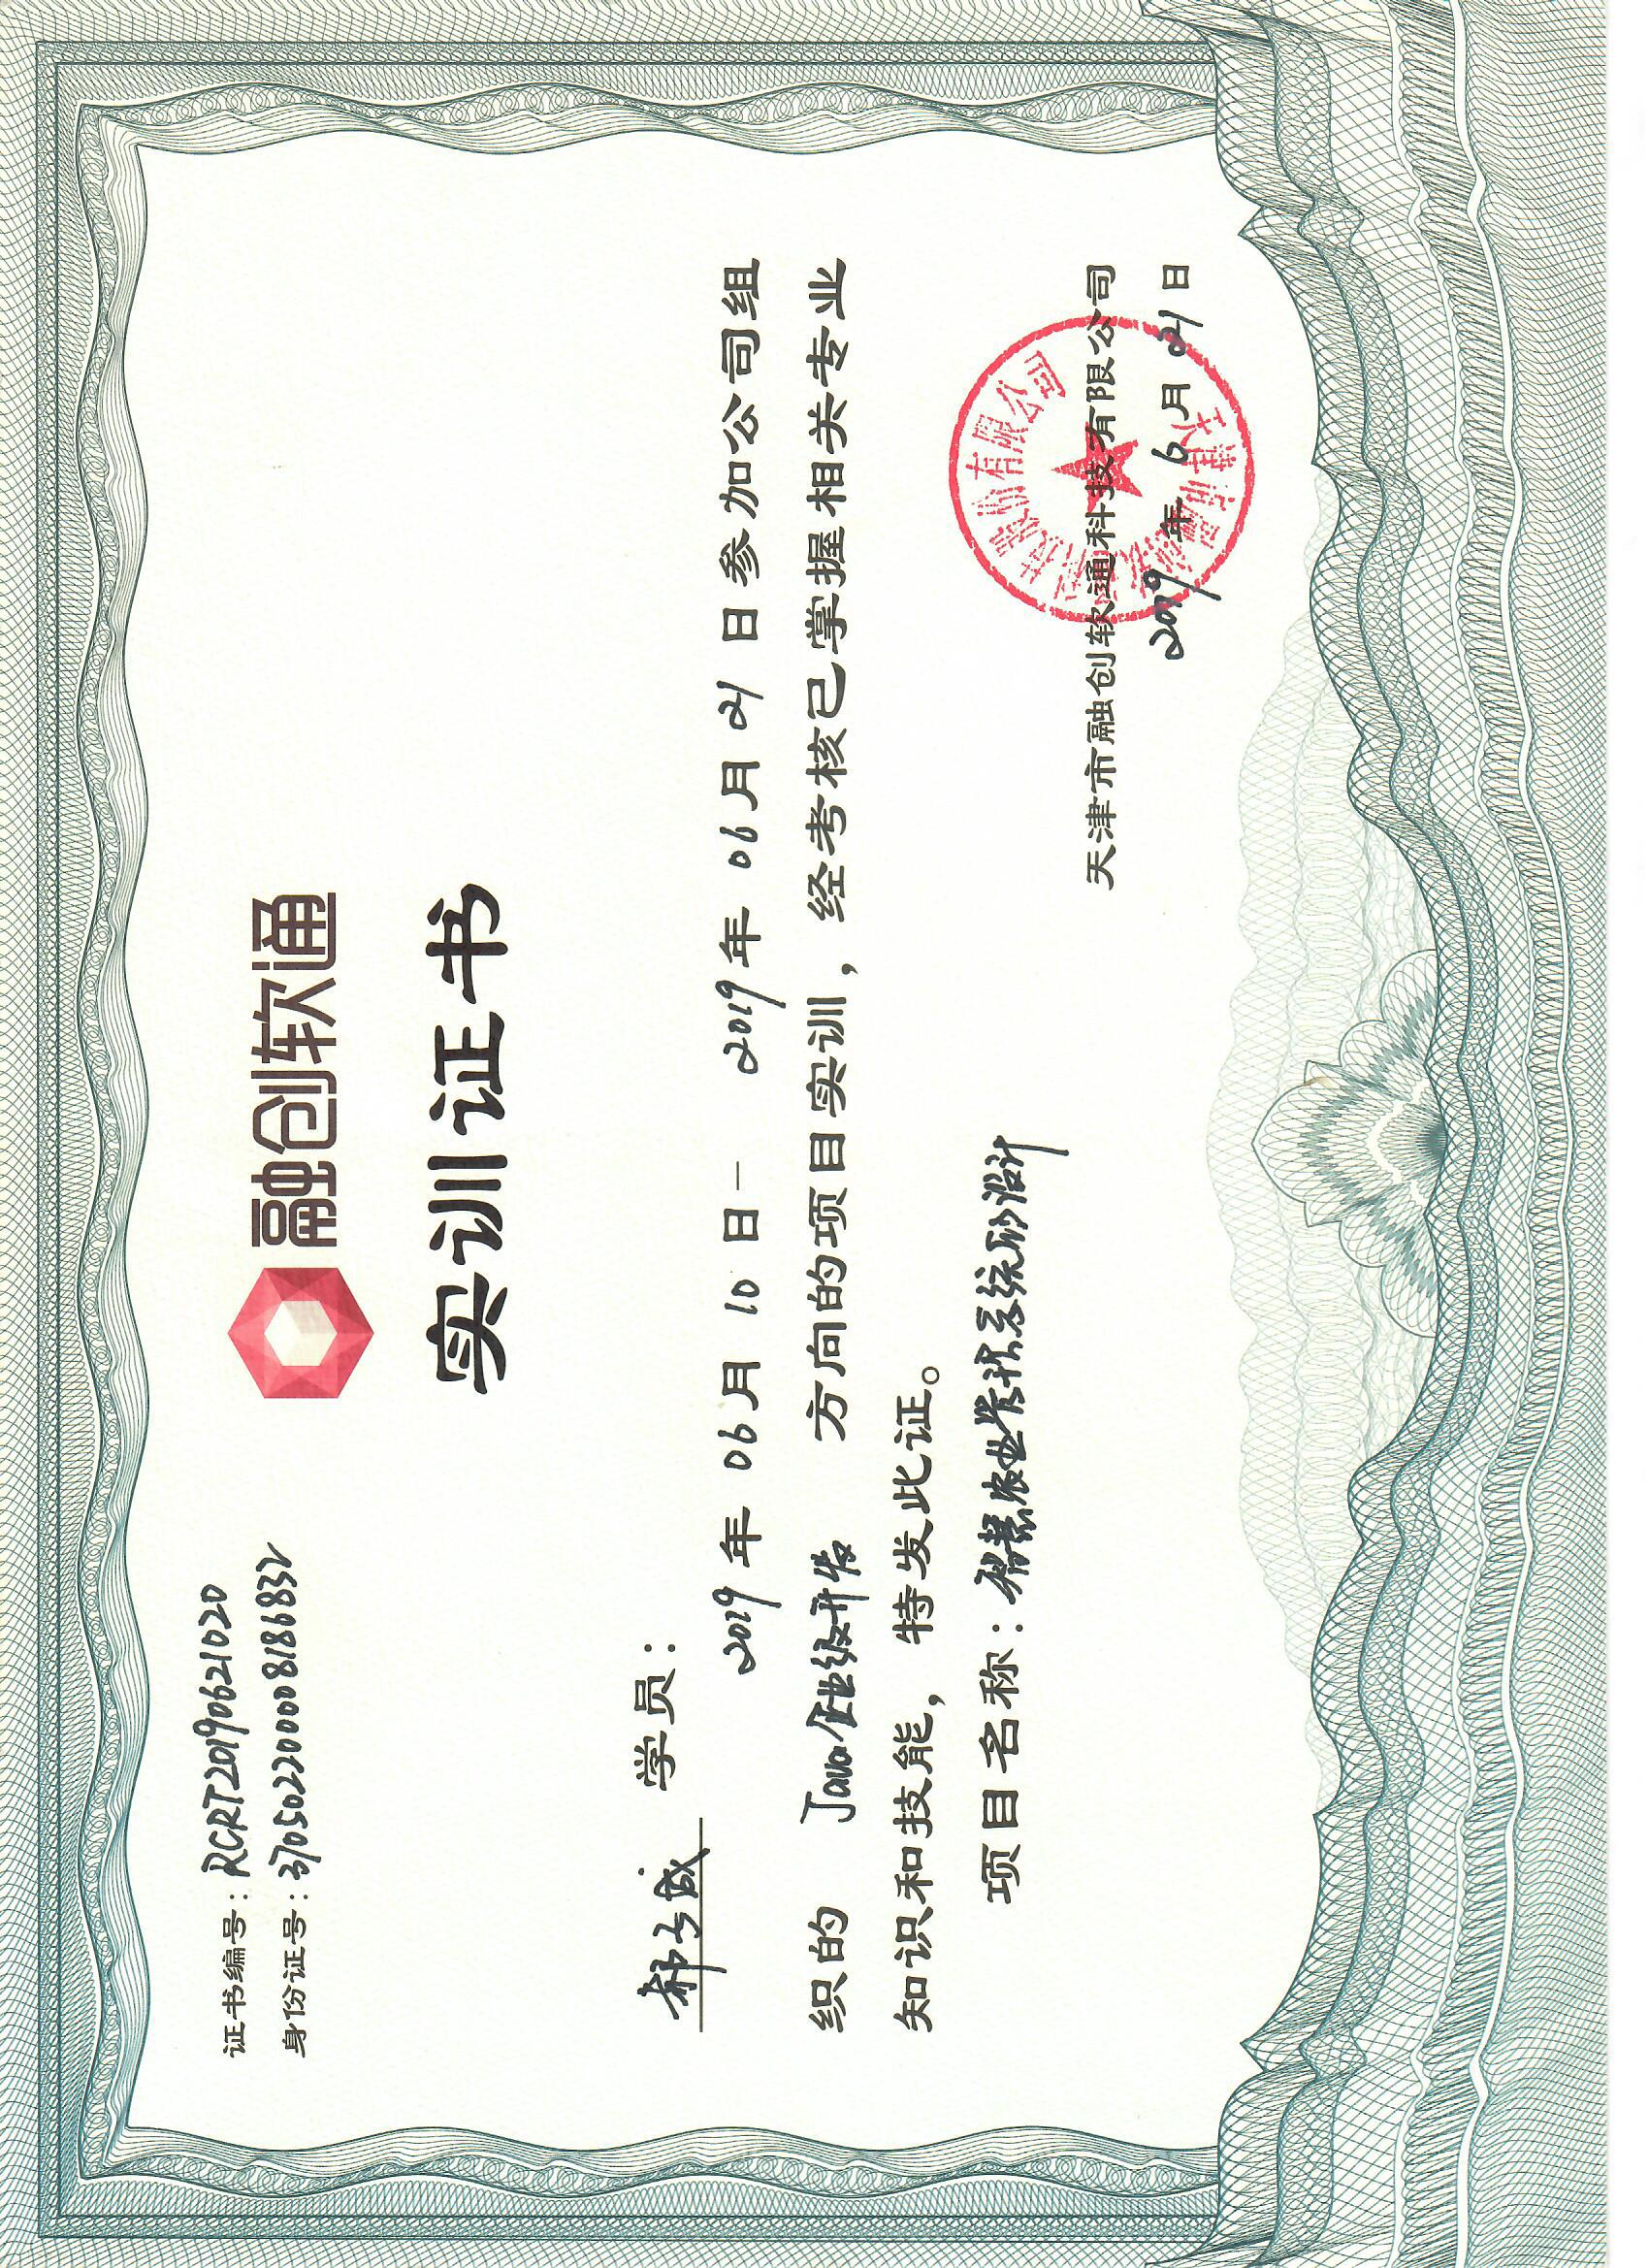 证书编号：RCRT20190621020
身份证号：370502200008186832
融创软通
实训证书
郝子成 学员：
2019年 06月 10 日— 2019年 06月 21 日参加公司组
织的 Java企业级开发 方向的项目实训，经考核已掌握相关专业
知识和技能，特发此证。
项目名称：智慧农业管理系统的设计
天津市融创软通科技股份有限公司
天津市融创软通科技有限公司
2019 年 6 月 21 日